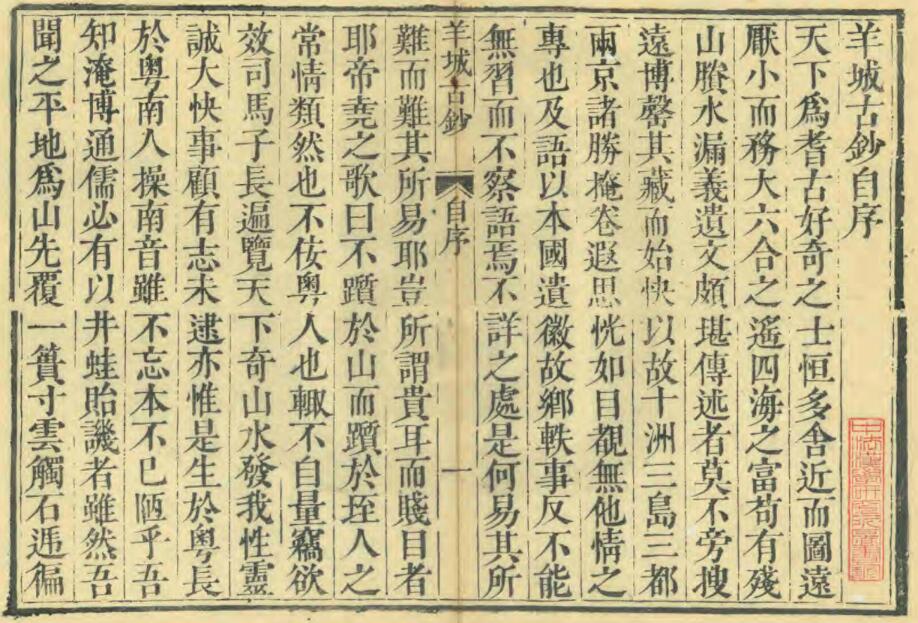 羊城古鈔自序
天下爲耆古好奇之士恒多舍近而圖遠
厭小而務大六合之遙四海之富苟有殘
山賸水漏義遺文頗堪傳述者莫不旁搜
遠博罄其藏而始快以故十洲三島三都
兩京諸勝掩卷遐思恍如目覩無他情之
專也及語以本國遺徽故鄉軼事反不能
無習而不察語焉不詳之處是何易其所
羊城古鈔
自序
一
難而難其所易耶豈所謂貴耳而賤目者
耶帝堯之歌曰不躓於山而躓於垤人之
常情類然也不佞粵人也輙不自量竊欲
效司馬子長遍覽天下奇山水發我性靈
誠大快事顧有志未逮亦惟是生於粵長
於粵南人操南音雖不忘本不已陋乎吾
知淹博通儒必有以井蛙貽譏者雖然吾
聞之平地爲山先覆一簣寸雲觸石遍徧